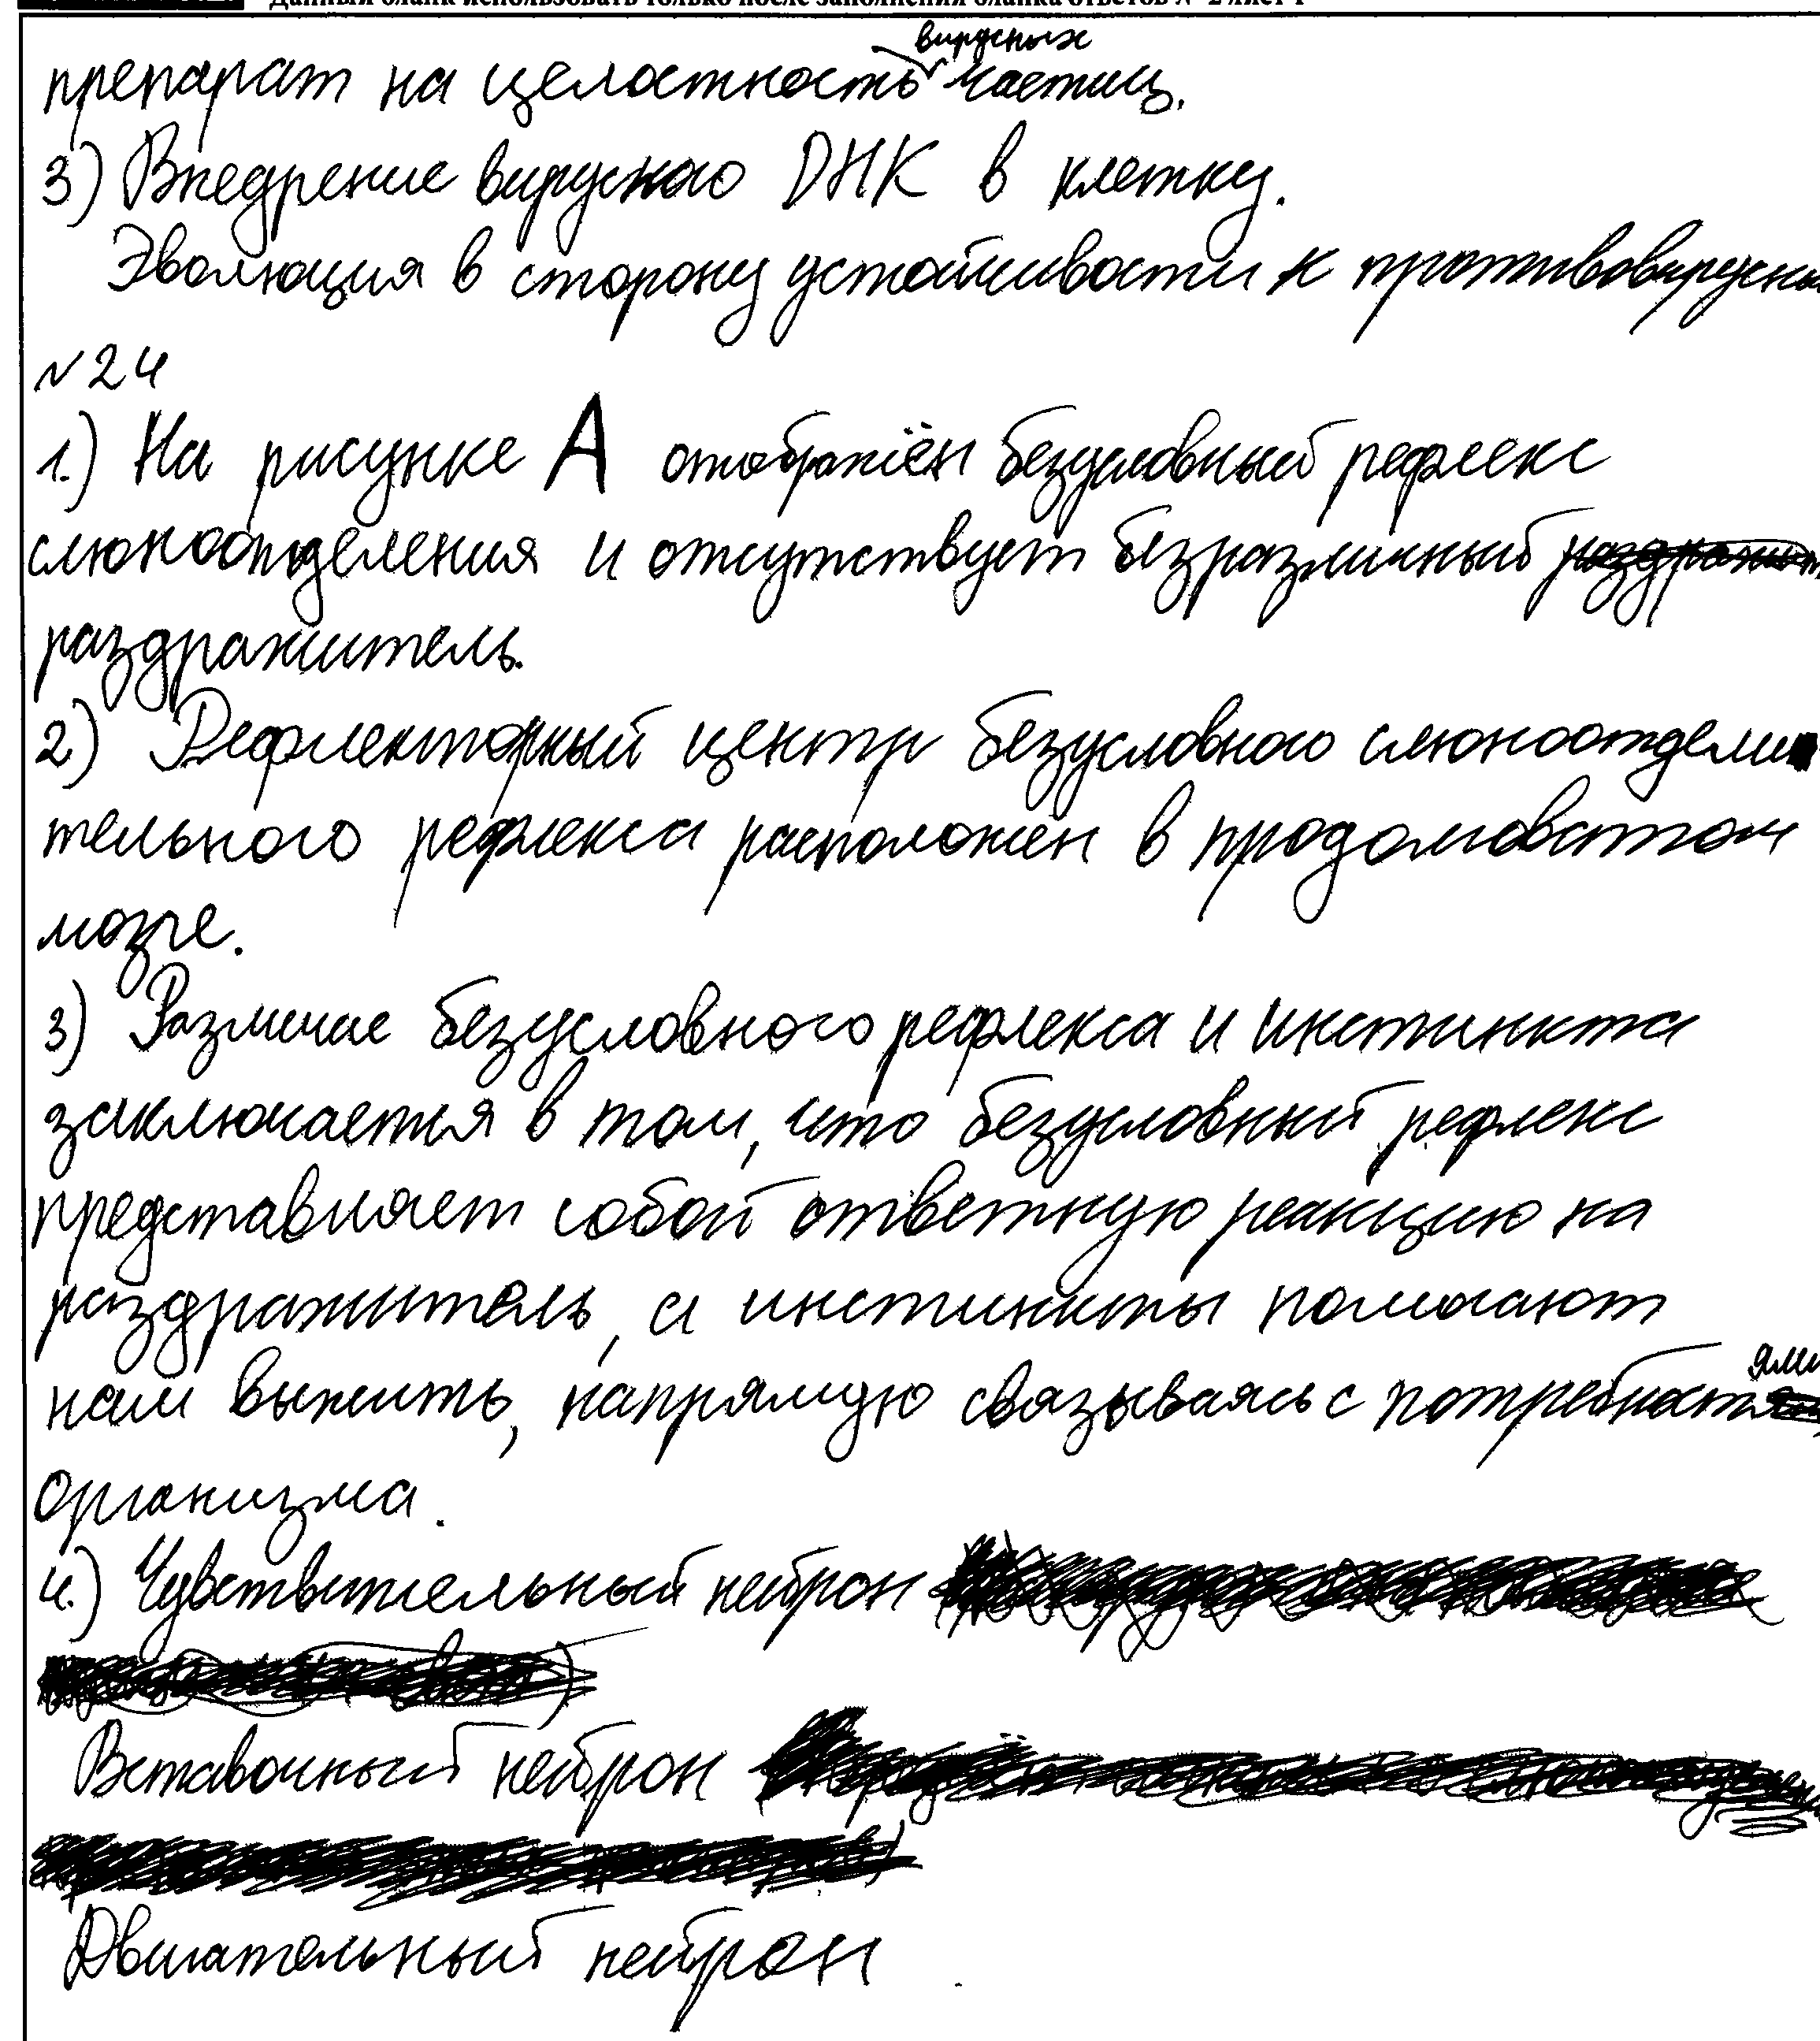 Данный бланк использовать только после заполнения бланка ответов № 2 лист 1
вирусных
препарат на целостность частиц.
3) Внедрение вирусного ДНК в клетку.
Эволюция в сторону устойчивости к
№24
1.) На рисунке А отображён безусловный рефлекс
слюноотделения и отсутствует безразличный
раздражитель.
2) Рефлекторный центр безусловного слюноотдели
тельного рефлекса расположен в продолговатом
мозге.
3) Различие безусловного рефлекса и инстинкта
заключается в том, что безусловный рефлекс
представляет собой ответную реакцию на
раздражитель, а инстинкты помогают
нам выжить, напрямую связываясь с потребностями
организма.
4.) Чувствительный нейрон
Вставочный нейрон
Двигательный нейрон